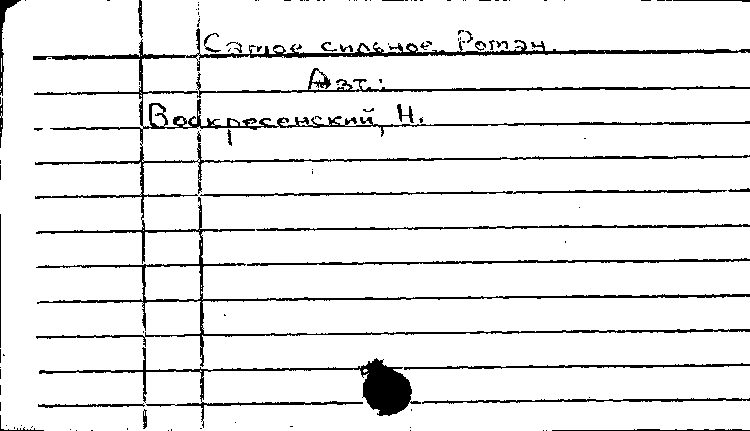 Самое сильное. Роман.
Авт.:
Воскресенский, Н.